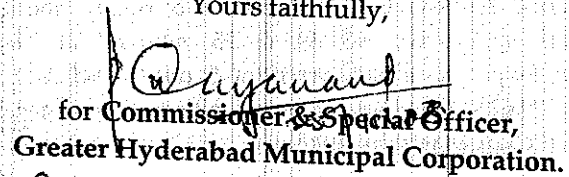 Yours faithfully,
for Commissioner & Special Officer,
Greater Hyderabad Municipal Corporation.